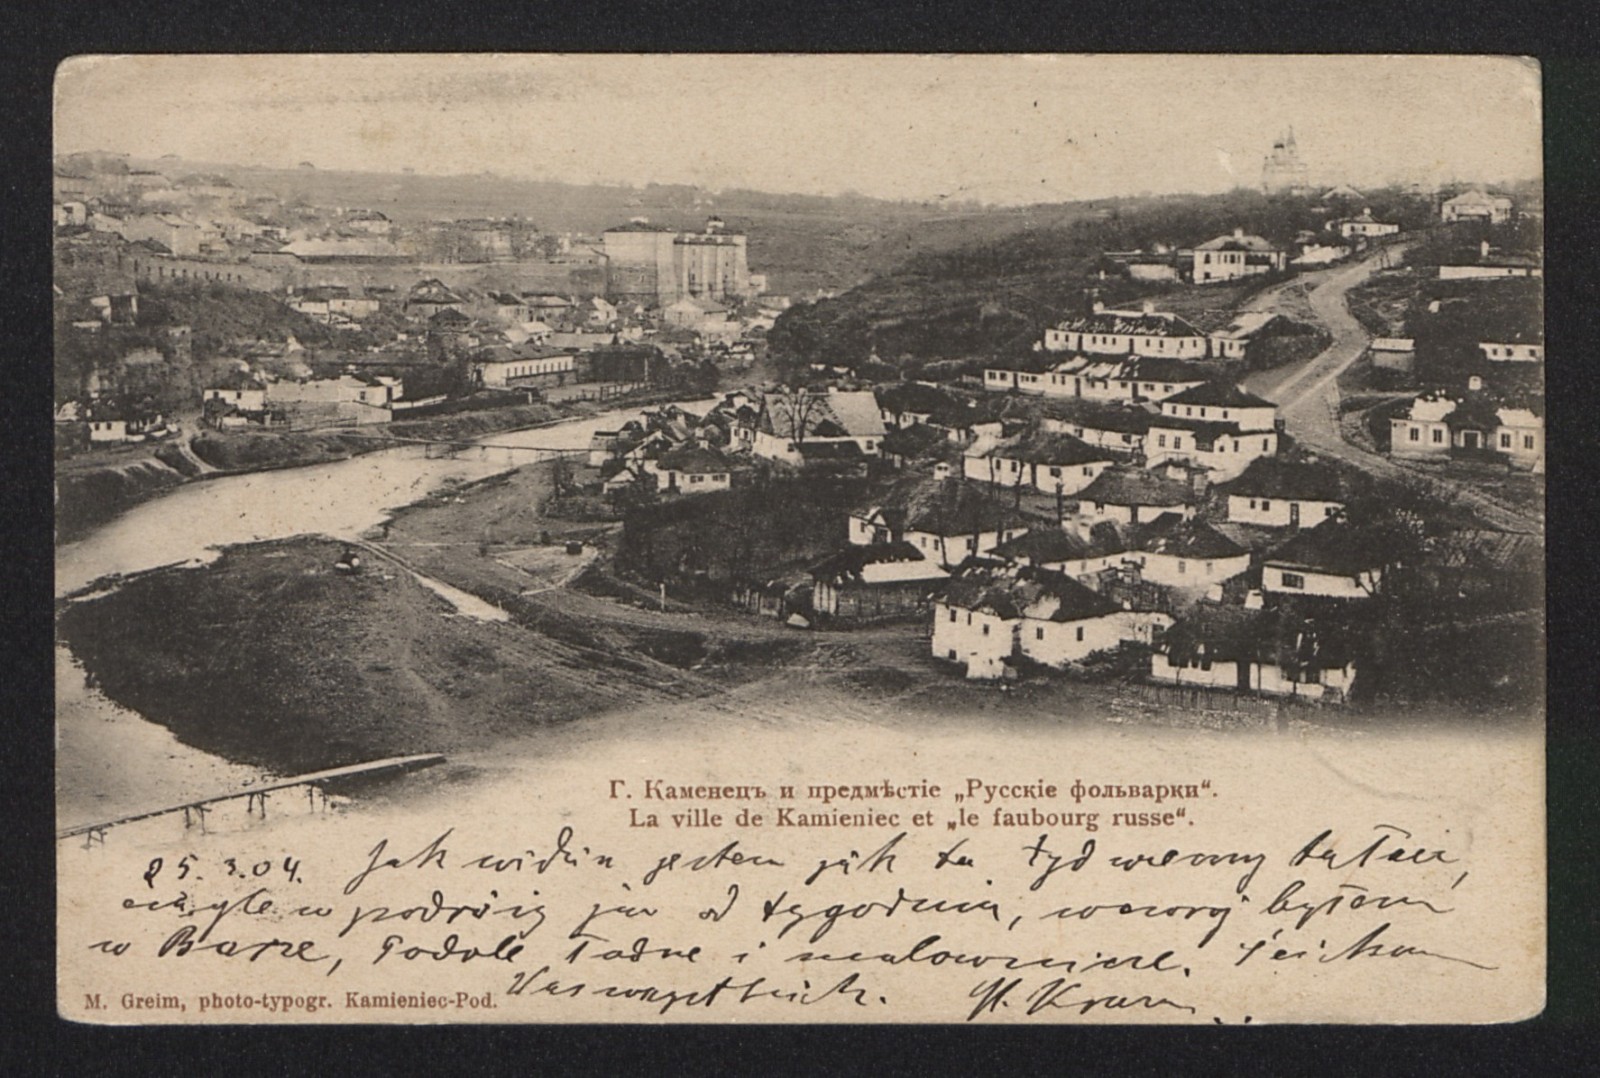 Г. Каменецъ и предмѣстіе „Русскіе фольварки“.
La ville de Kamieniec et „le faubourg russe“.
25.3.04. Jak widzi jestem jak ten żyd wieczny tułacz,
ciągle w podróży już od tygodnia, wczoraj byłem
w Barze, Podole ładne i malownicze. Ściskam
Was wszystkich. H.
M. Greim, photo-typogr. Kamieniec-Pod.